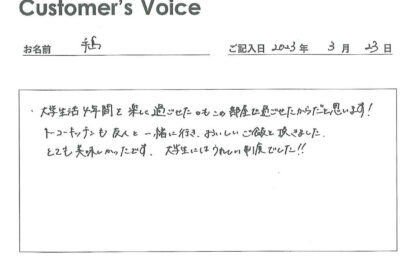 Customer's Voice
お名前 福 ご記入日 2023 年 3 月 23 日
・大学生活4年間を楽しく過ごせたのもこの部屋で過ごせたからだと思います!
トーコーキッチンも友人と一緒に行き、おいしいご飯を頂きました。
とても美味しかったです。大学生にはうれしい制度でした!!